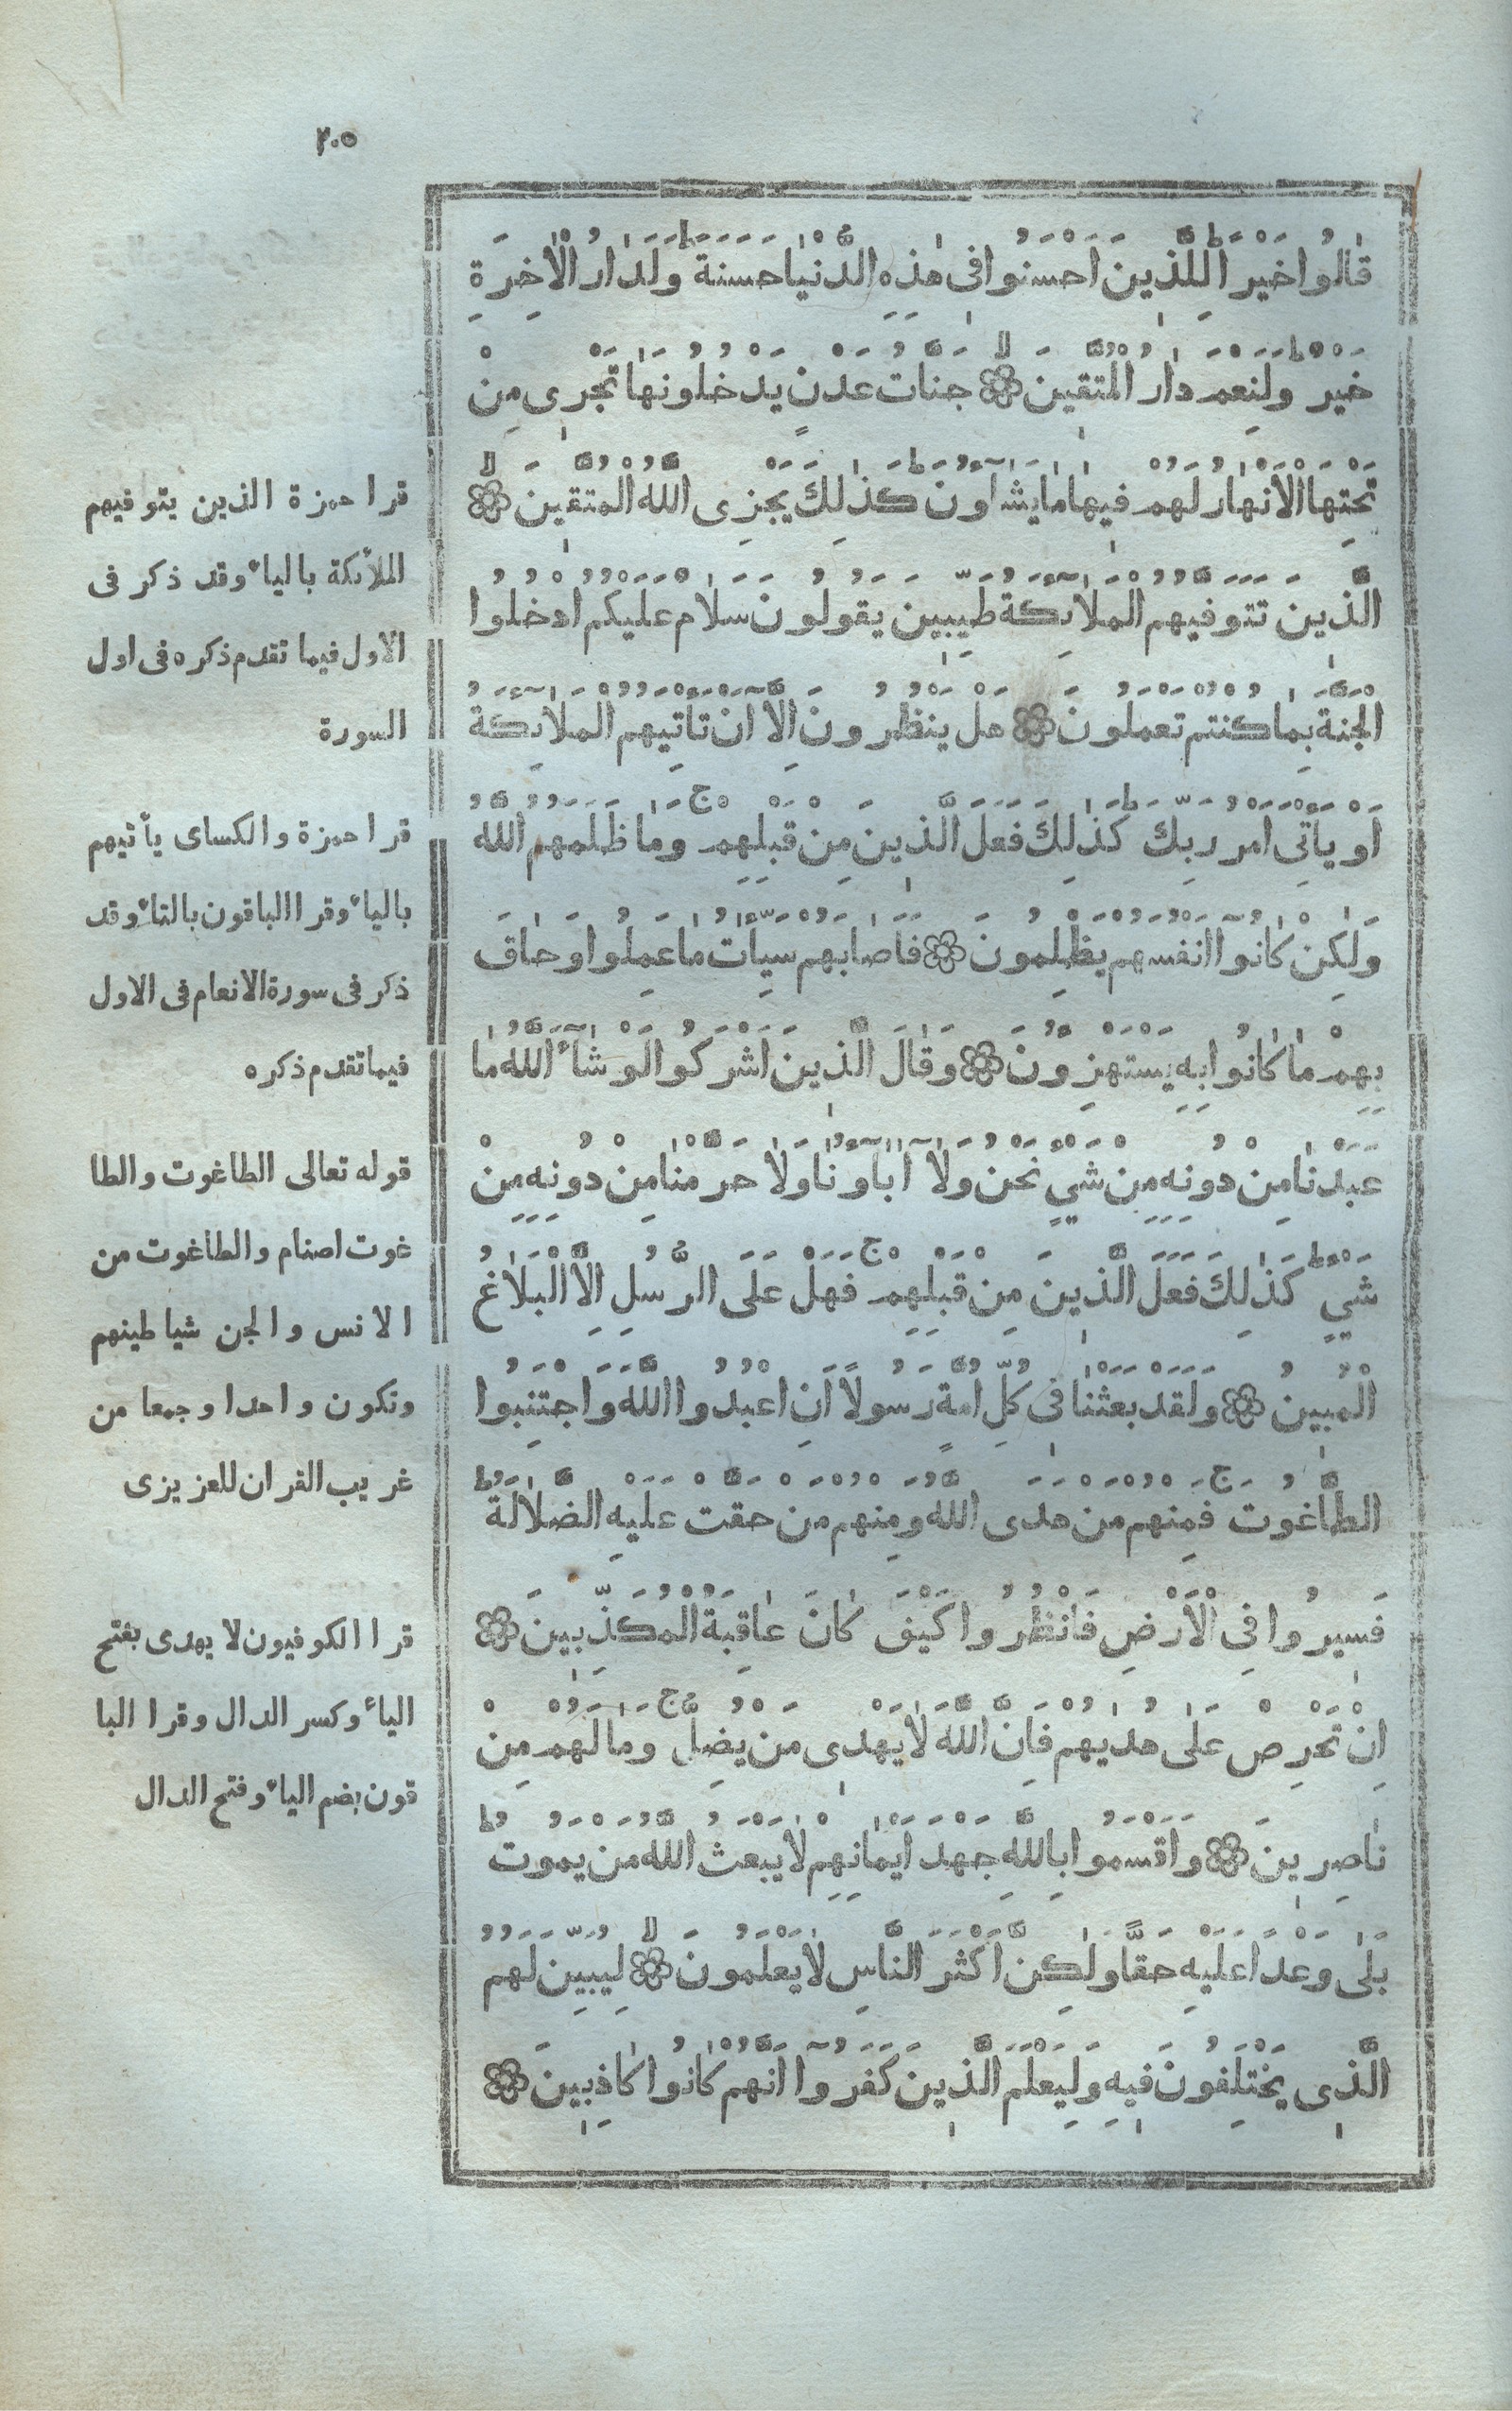 ٢٠٥
قَالُوا خَيْرًا لِلَّذِينَ اَحْسَنُوا فِى هٰذِهِ الدُّنْيَا حَسَنَةٌ ط وَلَدَارُ الْاٰخِرَةِ
خَيْرٌ ط وَلَنِعْمَ دَارُ الْمُتَّقِينَ لا جَنَّاتُ عَدْنٍ يَدْخُلُونَهَا تَجْرِى مِنْ
تَحْتِهَا الْاَنْهَارُ لَهُمْ فِيهَا مَا يَشَآؤُنَ ط كَذٰلِكَ يَجْزِى اللّٰهُ الْمُتَّقِينَ لا
الَّذِينَ تَتَوَفّٰيهُمُ الْمَلَآئِكَةُ طَيِّبِينَ يَقُولُونَ سَلَامٌ عَلَيْكُمُ ادْخُلُوا
الْجَنَّةَ بِمَا كُنْتُمْ تَعْمَلُونَ هَلْ يَنْظُرُونَ اِلَّآ اَنْ تَأْتِيَهُمُ الْمَلَآئِكَةُ
اَوْ يَأْتِىَ اَمْرُ رَبِّكَ ط كَذٰلِكَ فَعَلَ الَّذِينَ مِنْ قَبْلِهِمْ ج وَمَا ظَلَمَهُمُ اللّٰهُ
وَلٰكِنْ كَانُوآ اَنْفُسَهُمْ يَظْلِمُونَ فَاَصَابَهُمْ سَيِّاٰتُ مَا عَمِلُوا وَحَاقَ
بِهِمْ مَا كَانُوا بِهِ يَسْتَهْزِؤُنَ وَقَالَ الَّذِينَ اَشْرَكُوا لَوْ شَآءَ اللّٰهُ مَا
عَبَدْنَا مِنْ دُونِهِ مِنْ شَيْءٍ نَحْنُ وَلَآ اٰبَآؤُنَا وَلَا حَرَّمْنَا مِنْ دُونِهِ مِنْ
شَيْءٍ ط كَذٰلِكَ فَعَلَ الَّذِينَ مِنْ قَبْلِهِمْ ج فَهَلْ عَلَى الرُّسُلِ اِلَّا الْبَلَاغُ
الْمُبِينُ وَلَقَدْ بَعَثْنَا فِى كُلِّ اُمَّةٍ رَسُولًا اَنِ اعْبُدُوا اللّٰهَ وَاجْتَنِبُوا
الطَّاغُوتَ ج فَمِنْهُمْ مَنْ هَدَى اللّٰهُ وَمِنْهُمْ مَنْ حَقَّتْ عَلَيْهِ الضَّلَالَةُ ط
فَسِيرُوا فِى الْاَرْضِ فَانْظُرُوا كَيْفَ كَانَ عَاقِبَةُ الْمُكَذِّبِينَ
اِنْ تَحْرِصْ عَلٰى هُدٰيهُمْ فَاِنَّ اللّٰهَ لَا يَهْدِى مَنْ يُضِلُّ ج وَمَا لَهُمْ مِنْ
نَاصِرِينَ وَاَقْسَمُوا بِاللّٰهِ جَهْدَ اَيْمَانِهِمْ لَا يَبْعَثُ اللّٰهُ مَنْ يَمُوتُ ط
بَلٰى وَعْدًا عَلَيْهِ حَقًّا وَلٰكِنَّ اَكْثَرَ النَّاسِ لَا يَعْلَمُونَ لا لِيُبَيِّنَ لَهُمُ
الَّذِى يَخْتَلِفُونَ فِيهِ وَلِيَعْلَمَ الَّذِينَ كَفَرُوآ اَنَّهُمْ كَانُوا كَاذِبِينَ
قرا حمزة الذين يتوفيهم
الملأئكة بالياء وقد ذكر فى
الاول فيما تقدم ذكره فى اول
السورة
قرا حمزة والكساى يأتيهم
بالياء وقرا الباقون بالتاء وقد
ذكر فى سورة الانعام فى الاول
فيما تقدم ذكره
قوله تعالى الطاغوت والطا
غوت اصنام والطاغوت من
الانس والجن شياطينهم
وتكون واحدا وجمعا من
غريب القران للعزيزى
قرا الكوفيون لا يهدى بفتح
الياء وكسر الدال وقرا البا
قون بضم الياء وفتح الدال